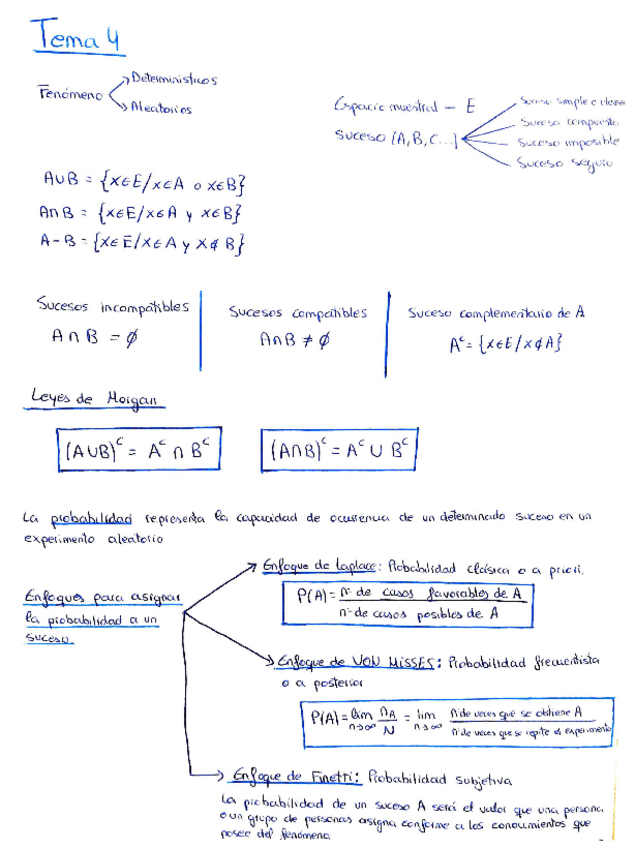 Tema 4
Fenómeno
Deterministicos
Aleatorios
Espacio muestral — E
Suceso (A, B, C...)
Suceso simple o
Suceso compuesto
Suceso imposible
Suceso seguro
A∪B = {x∈E/x∈A o x∈B}
A∩B = {x∈E/x∈A y x∈B}
A-B = {x∈E/x∈A y x∉B}
Sucesos incompatibles
A∩B = ∅
Sucesos compatibles
A∩B ≠ ∅
Suceso complementario de A
Aᶜ = {x∈E/x∉A}
Leyes de Morgan
(A∪B)ᶜ = Aᶜ ∩ Bᶜ
(A∩B)ᶜ = Aᶜ ∪ Bᶜ
La probabilidad representa la capacidad de ocurrencia de un determinado suceso en un
experimento aleatorio
Enfoques para asignar
la probabilidad a un
suceso.
Enfoque de Laplace: Probabilidad clásica o a priori.
P(A) = nº de casos favorables de A / nº de casos posibles de A
Enfoque de VON MISSES: Probabilidad frecuentista
o a posterior
P(A) = lim n→∞ nA/N = lim n→∞ nº de veces que se obtiene A / nº de veces que se repite el experimento
Enfoque de Finetti: Probabilidad subjetiva
La probabilidad de un suceso A será el valor que una persona
o un grupo de personas asigna conforme a los conocimientos que
posee del fenómeno.